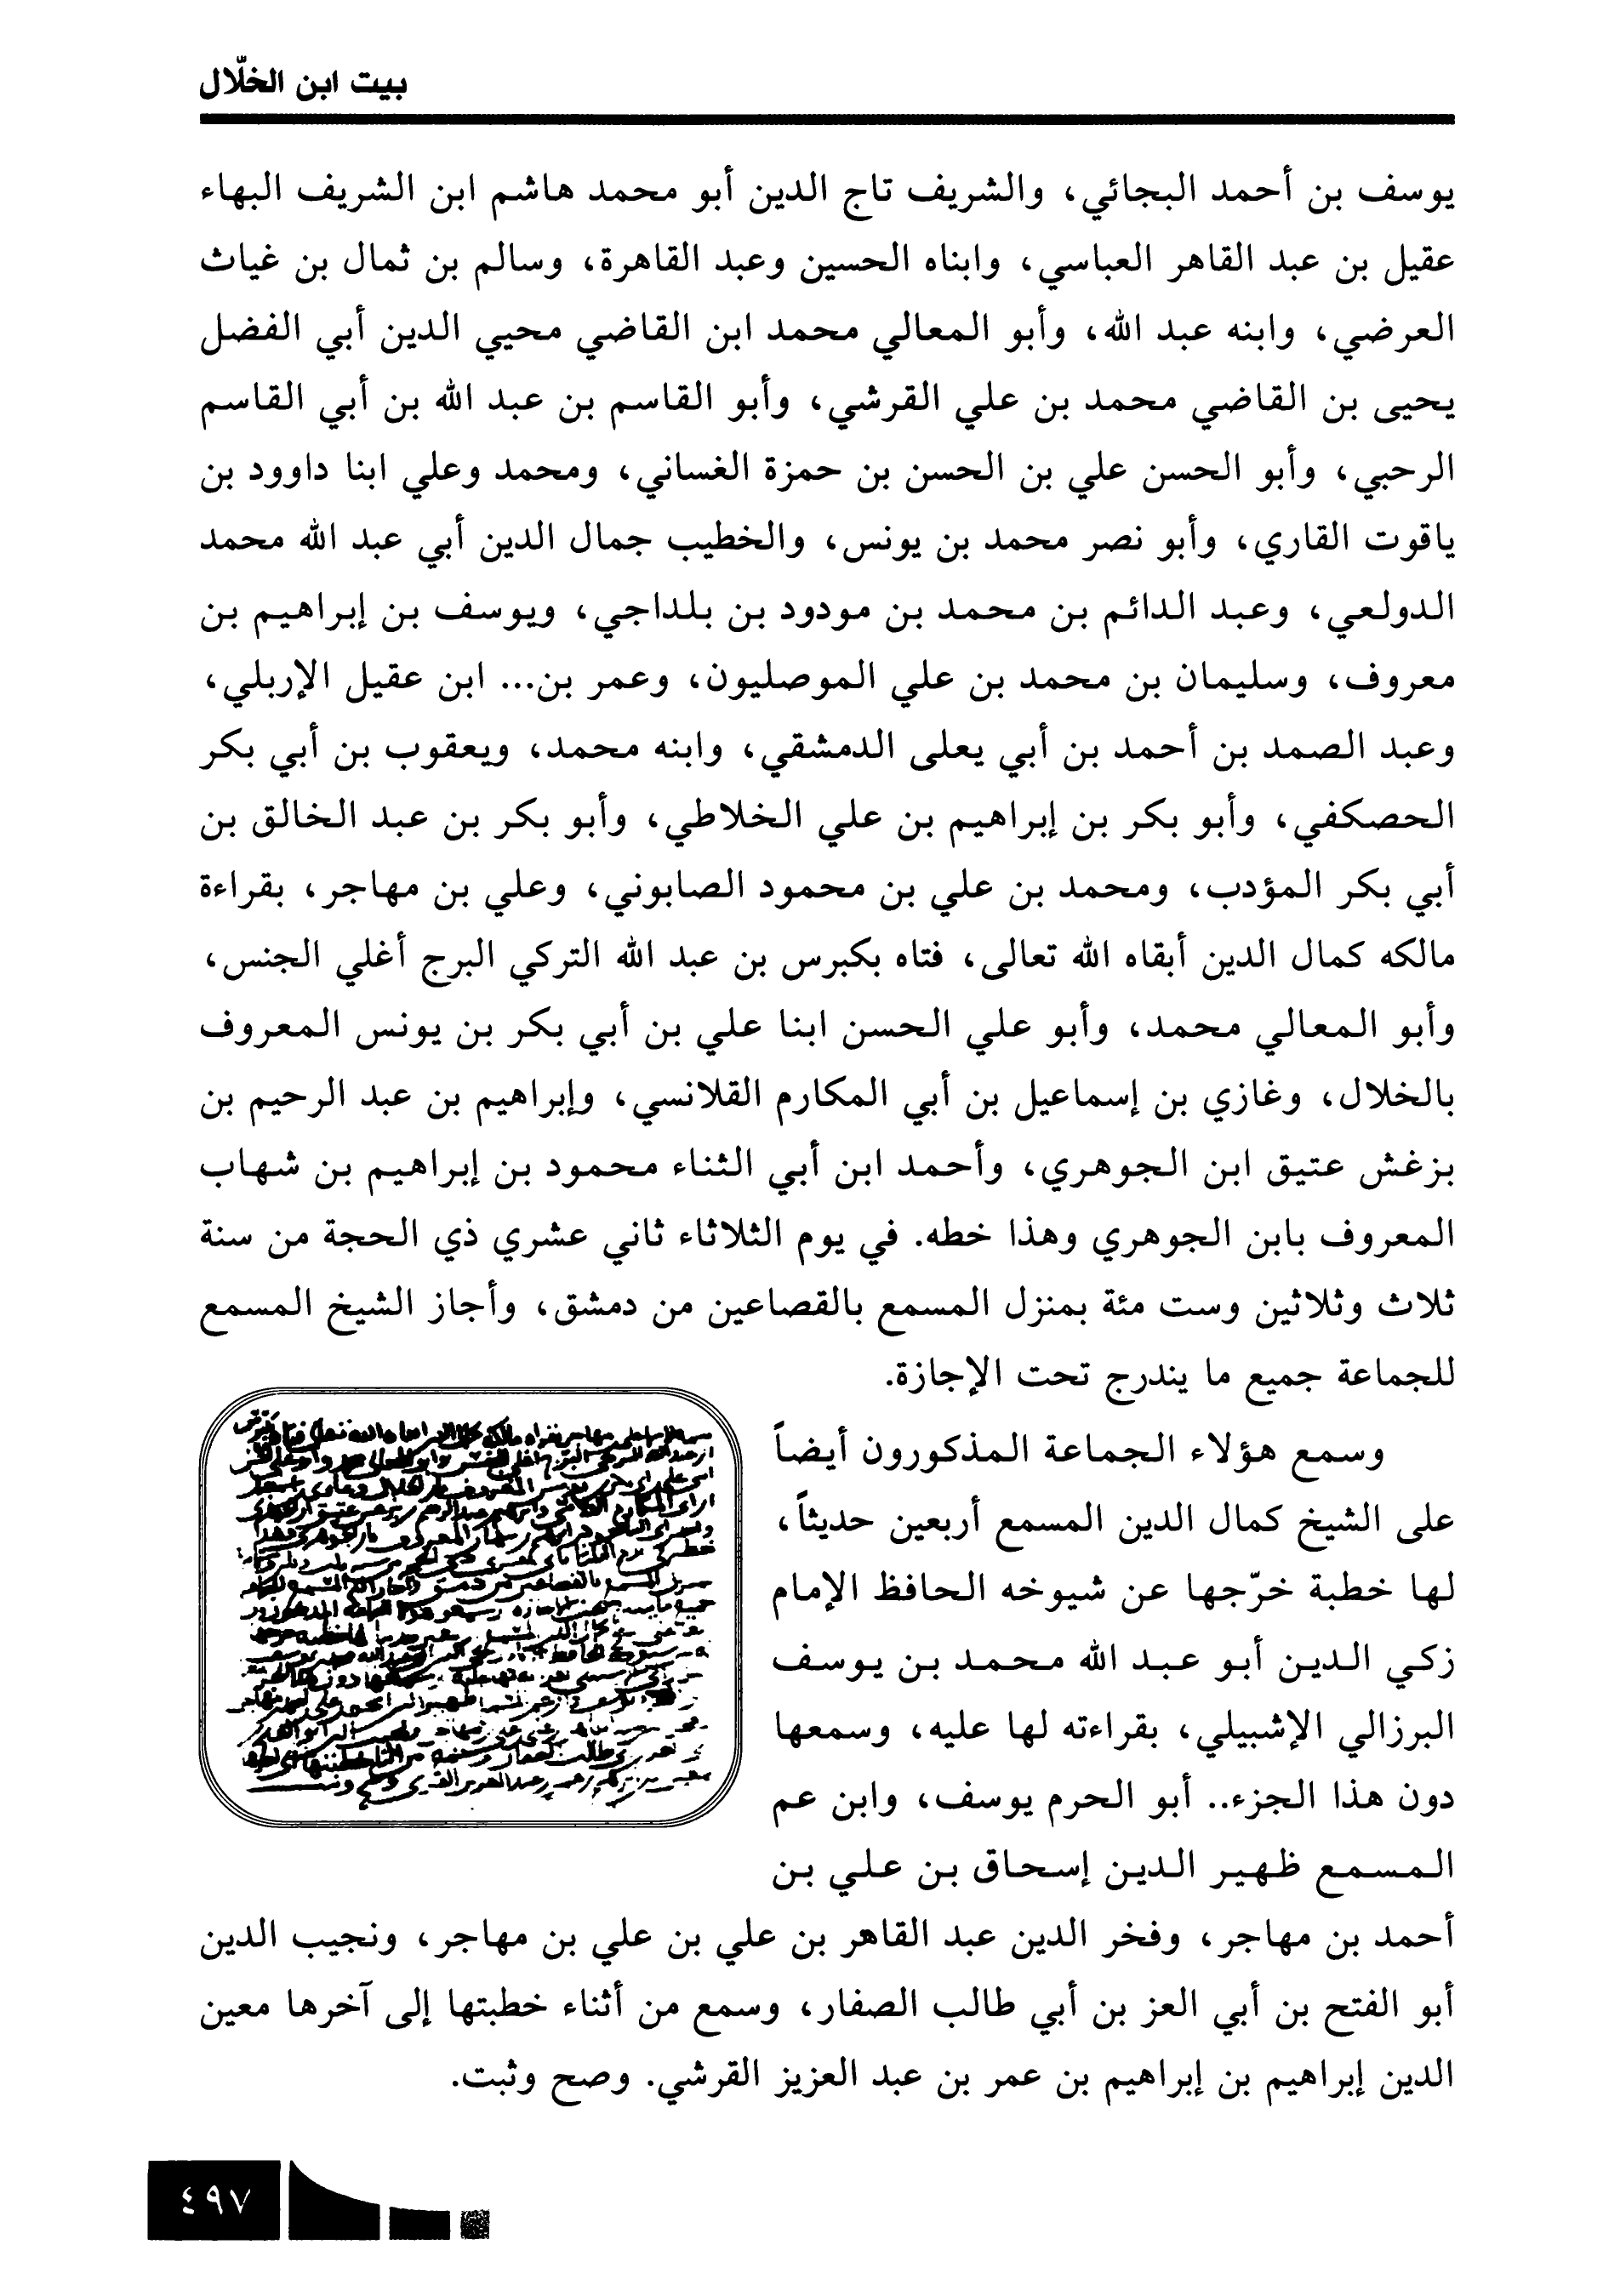 بيت ابن الخلّال
يوسف بن أحمد البجائي، والشريف تاج الدين أبو محمد هاشم ابن الشريف البهاء
عقيل بن عبد القاهر العباسي، وابناه الحسين وعبد القاهرة، وسالم بن ثمال بن غياث
العرضي، وابنه عبد الله، وأبو المعالي محمد ابن القاضي محيي الدين أبي الفضل
يحيى بن القاضي محمد بن علي القرشي، وأبو القاسم بن عبد الله بن أبي القاسم
الرحبي، وأبو الحسن علي بن الحسن بن حمزة الغساني، ومحمد وعلي ابنا داوود بن
ياقوت القاري، وأبو نصر محمد بن يونس، والخطيب جمال الدين أبي عبد الله محمد
الدولعي، وعبد الدائم بن محمد بن مودود بن بلداجي، ويوسف بن إبراهيم بن
معروف، وسليمان بن محمد بن علي الموصليون، وعمر بن... ابن عقيل الإربلي،
وعبد الصمد بن أحمد بن أبي يعلى الدمشقي، وابنه محمد، ويعقوب بن أبي بكر
الحصكفي، وأبو بكر بن إبراهيم بن علي الخلاطي، وأبو بكر بن عبد الخالق بن
أبي بكر المؤدب، ومحمد بن علي بن محمود الصابوني، وعلي بن مهاجر، بقراءة
مالكه كمال الدين أبقاه الله تعالى، فتاه بكبرس بن عبد الله التركي البرج أغلي الجنس،
وأبو المعالي محمد، وأبو علي الحسن ابنا علي بن أبي بكر بن يونس المعروف
بالخلال، وغازي بن إسماعيل بن أبي المكارم القلانسي، وإبراهيم بن عبد الرحيم بن
بزغش عتيق ابن الجوهري، وأحمد ابن أبي الثناء محمود بن إبراهيم بن شهاب
المعروف بابن الجوهري وهذا خطه. في يوم الثلاثاء ثاني عشري ذي الحجة من سنة
ثلاث وثلاثين وست مئة بمنزل المسمع بالقصاعين من دمشق، وأجاز الشيخ المسمع
للجماعة جميع ما يندرج تحت الإجازة.
وسمع هؤلاء الجماعة المذكورون أيضاً
على الشيخ كمال الدين المسمع أربعين حديثاً،
لها خطبة خرّجها عن شيوخه الحافظ الإمام
زكي الدين أبو عبد الله محمد بن يوسف
البرزالي الإشبيلي، بقراءته لها عليه، وسمعها
دون هذا الجزء.. أبو الحرم يوسف، وابن عم
المسمع ظهير الدين إسحاق بن علي بن
أحمد بن مهاجر، وفخر الدين عبد القاهر بن علي بن علي بن مهاجر، ونجيب الدين
أبو الفتح بن أبي العز بن أبي طالب الصفار، وسمع من أثناء خطبتها إلى آخرها معين
الدين إبراهيم بن إبراهيم بن عمر بن عبد العزيز القرشي. وصح وثبت.
٤٩٧